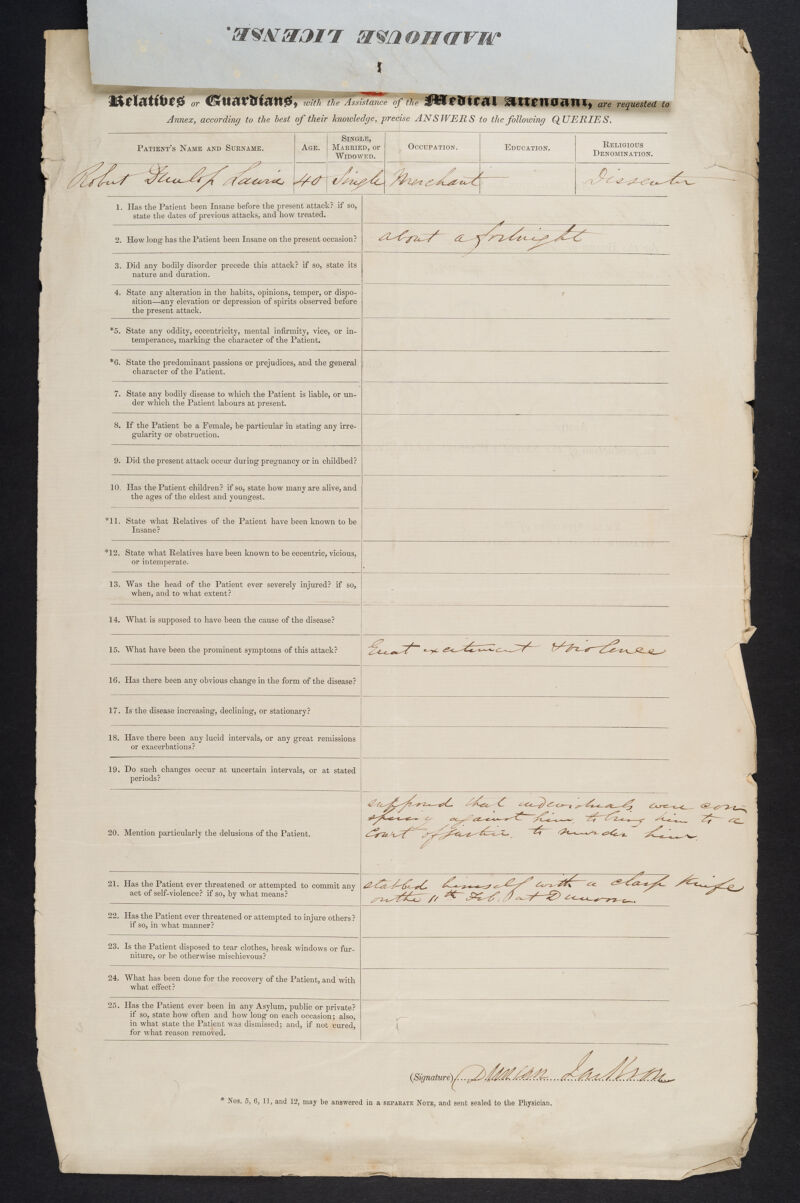 MADHOUSE LICENSE.
Relatives or Guardians, with the Assistance of the Medical Attendant, are requested to
Annex, according to the best of their knowledge, precise ANSWERS to the following QUERIES.
Patient's Name and Surname. Age. Single, Married, or Widowed. Occupation. Education. Religious Denomination.
Robert Dunlop Lawrie 40 Single Merchant Dissenter
1. Has the Patient been Insane before the present attack? if so,
state the dates of previous attacks, and how treated.
2. How long has the Patient been Insane on the present occasion? about a fortnight
3. Did any bodily disorder precede this attack? if so, state its
nature and duration.
4. State any alteration in the habits, opinions, temper, or dispo-
sition—any elevation or depression of spirits observed before
the present attack.
*5. State any oddity, eccentricity, mental infirmity, vice, or in-
temperance, marking the character of the Patient.
*6. State the predominant passions or prejudices, and the general
character of the Patient.
7. State any bodily disease to which the Patient is liable, or un-
der which the Patient labours at present.
8. If the Patient be a Female, be particular in stating any irre-
gularity or obstruction.
9. Did the present attack occur during pregnancy or in childbed?
10. Has the Patient children? if so, state how many are alive, and
the ages of the eldest and youngest.
*11. State what Relatives of the Patient have been known to be
Insane?
*12. State what Relatives have been known to be eccentric, vicious,
or intemperate.
13. Was the head of the Patient ever severely injured? if so,
when, and to what extent?
14. What is supposed to have been the cause of the disease?
15. What have been the prominent symptoms of this attack? Great excitement & violence
16. Has there been any obvious change in the form of the disease?
17. Is the disease increasing, declining, or stationary?
18. Have there been any lucid intervals, or any great remissions
or exacerbations?
19. Do such changes occur at uncertain intervals, or at stated
periods?
20. Mention particularly the delusions of the Patient.
supposed that individuals were con
against him to bring him to a
Court of Justice, to murder him.
21. Has the Patient ever threatened or attempted to commit any
act of self-violence? if so, by what means?
stabbed himself with a clasp Knife
on the 11th Feb. at Dunoon
22. Has the Patient ever threatened or attempted to injure others?
if so, in what manner?
23. Is the Patient disposed to tear clothes, break windows or fur-
niture, or be otherwise mischievous?
24. What has been done for the recovery of the Patient, and with
what effect?
25. Has the Patient ever been in any Asylum, public or private?
if so, state how often and how long on each occasion; also,
in what state the Patient was dismissed; and, if not cured,
for what reason removed.
(Signature) Duncan
* Nos. 5, 6, 11, and 12, may be answered in a SEPARATE NOTE, and sent sealed to the Physician.